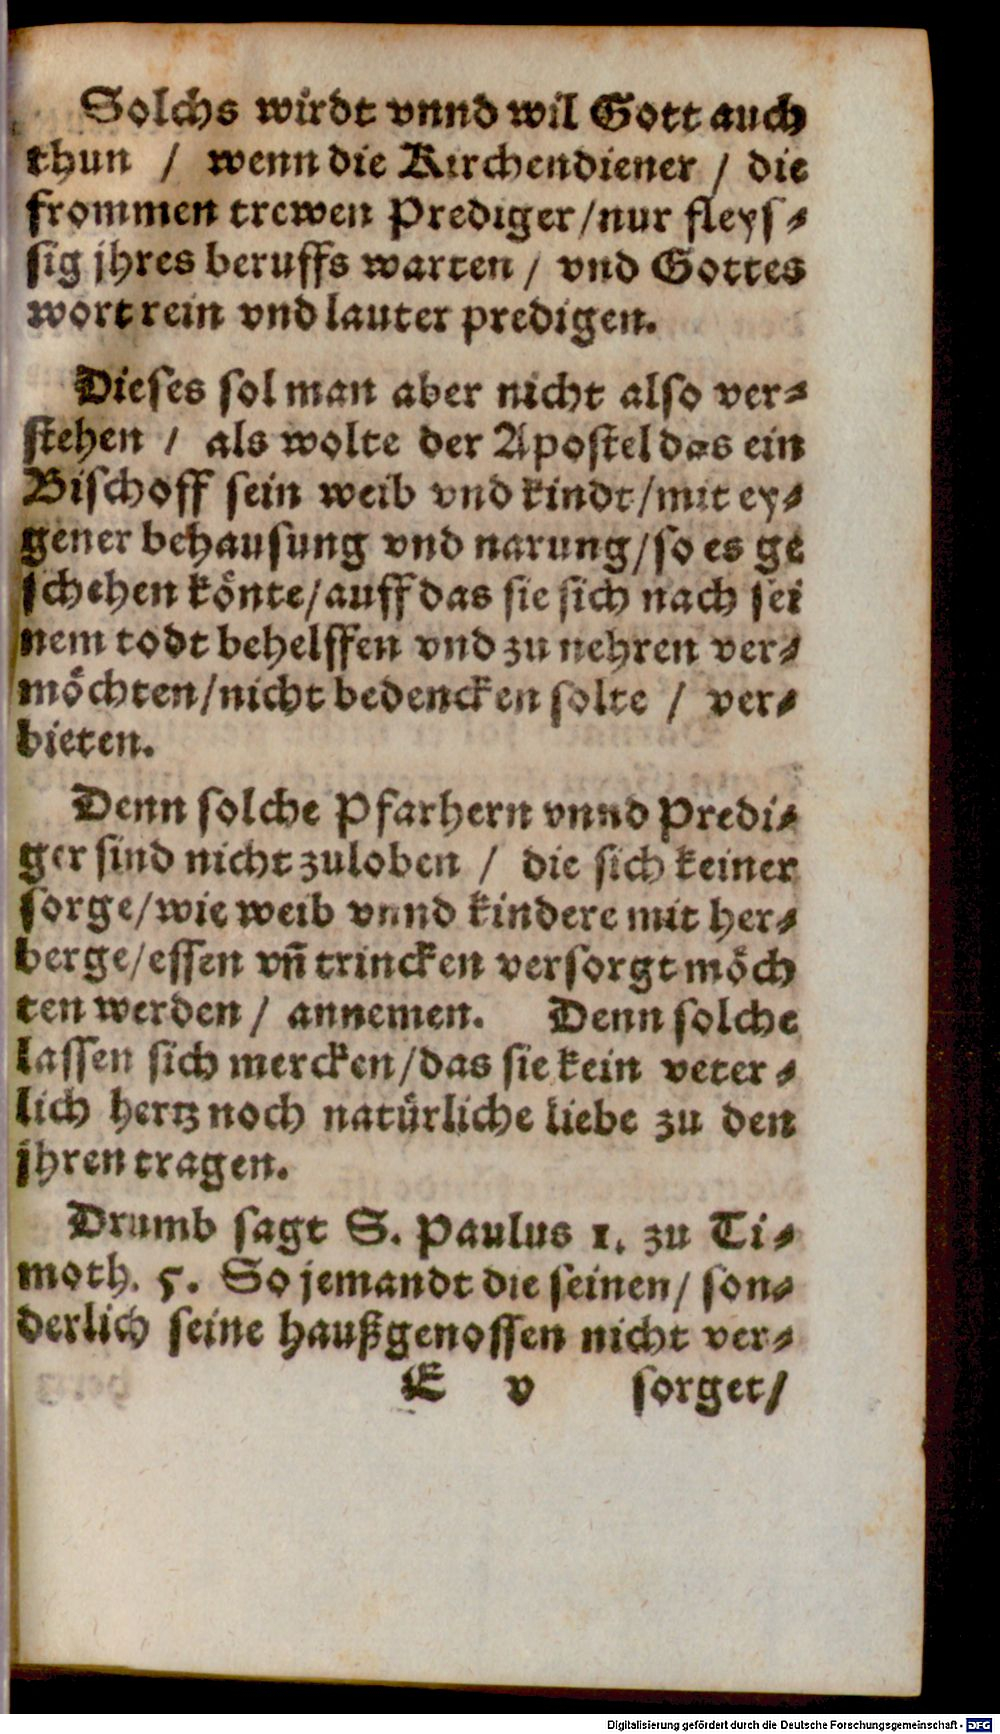 Solchs wirdt vnnd wil Gott auch
thun / wenn die Kirchendiener / die
frommen trewen Prediger/nur fleys⸗
sig jhres beruffs warten / vnd Gottes
wort rein vnd lauter predigen.
Dieses sol man aber nicht also ver⸗
stehen / als wolte der Apostel das ein
Bischoff sein weib vnd kindt/mit ey⸗
gener behausung vnd narung/so es ge
schehen könte/auff das sie sich nach sei
nem todt behelffen vnd zu nehren ver⸗
möchten/nicht bedencken solte / ver⸗
bieten.
Denn solche Pfarhern vnnd Predi⸗
ger sind nicht zuloben / die sich keiner
sorge/wie weib vnnd kindere mit her⸗
berge/essen vñ trincken versorgt möch
ten werden / annemen. Denn solche
lassen sich mercken/das sie kein veter⸗
lich hertz noch natürliche liebe zu den
jhren tragen.
Drumb sagt S. Paulus 1. zu Ti⸗
moth. 5. So jemandt die seinen/ son⸗
derlich seine haußgenossen nicht ver⸗
E v sorget/
Digitalisierung gefördert durch die Deutsche Forschungsgemeinschaft - DFG